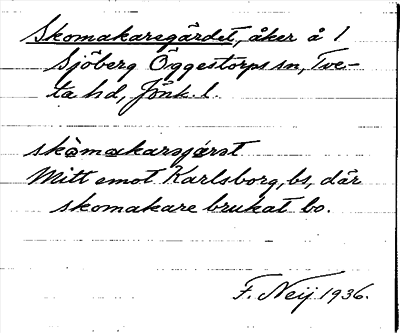 Skomakaregärdet, åker å 1
Sjöberg Öggestorps sn, Tve-
ta hd, Jönk. l.
skòmakarsjæ̀rst
Mitt emot Karlsborg, bs, där
skomakare brukat bo.
F. Neij 1936.